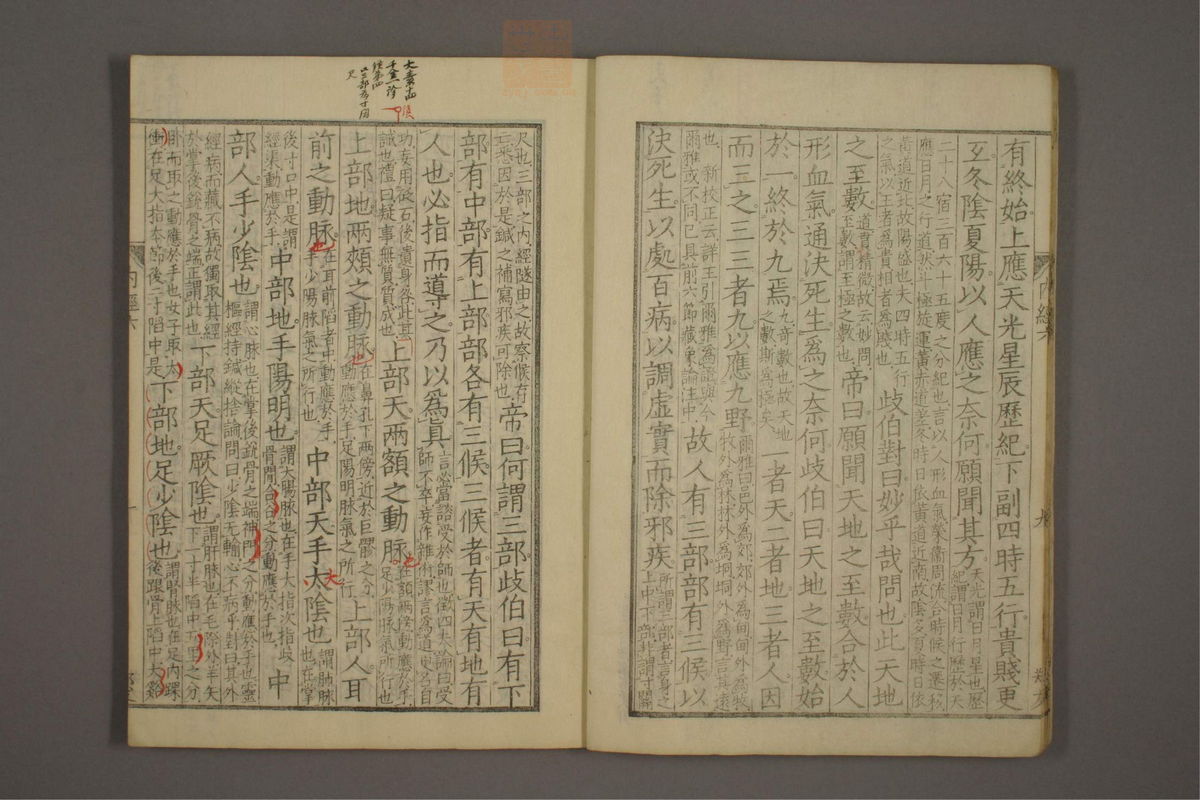 有終始上應天光星辰歷紀下副四時五行貴賤更
互冬陰夏陽以人應之奈何願聞其方天光謂日月星也歷紀謂日月行歷於天
二十八宿三百六十五度之分紀也言以人形血氣榮衛周流合時候之遷移
應日月之行道然斗極旋運黃赤道差冬時日依黃道近南故陰多夏時日依
黃道近北故陽盛也夫四時五行之氣以王者為貴相者為賤也歧伯對曰妙乎哉問也此天地
之至數道貫精微故云妙問至數謂至極之數也帝曰願聞天地之至數合於人
形血氣通決死生為之奈何歧伯曰天地之至數始
於一終於九焉九奇數也故天地之數斯為極矣一者天二者地三者人因
而三之三三者九以應九野爾雅曰邑外為郊郊外為甸甸外為牧牧外為林林外為坰坰外為野言其遠
也 新校正云詳王引爾雅為證與今爾雅或不同已具前六節藏象論注中故人有三部部有三候以
決死生以處百病以調虛實而除邪疾所謂三部者言身之上中下部非謂寸關
大素十四
千金一診
候第四
以三部為寸関
尺
尺也三部之內經隧由之故察候存亡悉因於是鍼之補寫邪疾可除也帝曰何謂三部歧伯曰有下
部有中部有上部部各有三候三候者有天有地有
人也必指而導之乃以為真言必當諮受於師也徵四失論曰受師不卒妄作雜術謬言為道更名自
功妄用砭石後遺身咎此其誠也禮曰疑事無質質成也上部天兩額之動脉在額兩傍動應於手足少陽脉氣所行也
上部地兩頰之動脉在鼻孔下兩傍近於巨髎之分動應於手足陽明脉氣之所行上部人耳
前之動脉在耳前陷者中動應於手手少陽脉氣之所行也中部天手太陰也謂肺脉也在掌
後寸口中是謂經渠動應於手中部地手陽明也謂大腸脉也在手大指次指歧骨間合谷之分動應於手也中
部人手少陰也謂心脉也在掌後銳骨之端神門之分動應於手也靈樞經持鍼縱捨論問曰少陰无輸心不病乎對曰其外
經病而藏不病故獨取其經於掌後銳骨之端正謂此也下部天足厥陰也謂肝脉也在毛際外羊矢下一寸半陷中五里之分
臥而取之動應於手也女子取太衝在足大指本節後二寸陷中是下部地足少陰也謂腎脉也在足內踝後跟骨上陷中大谿